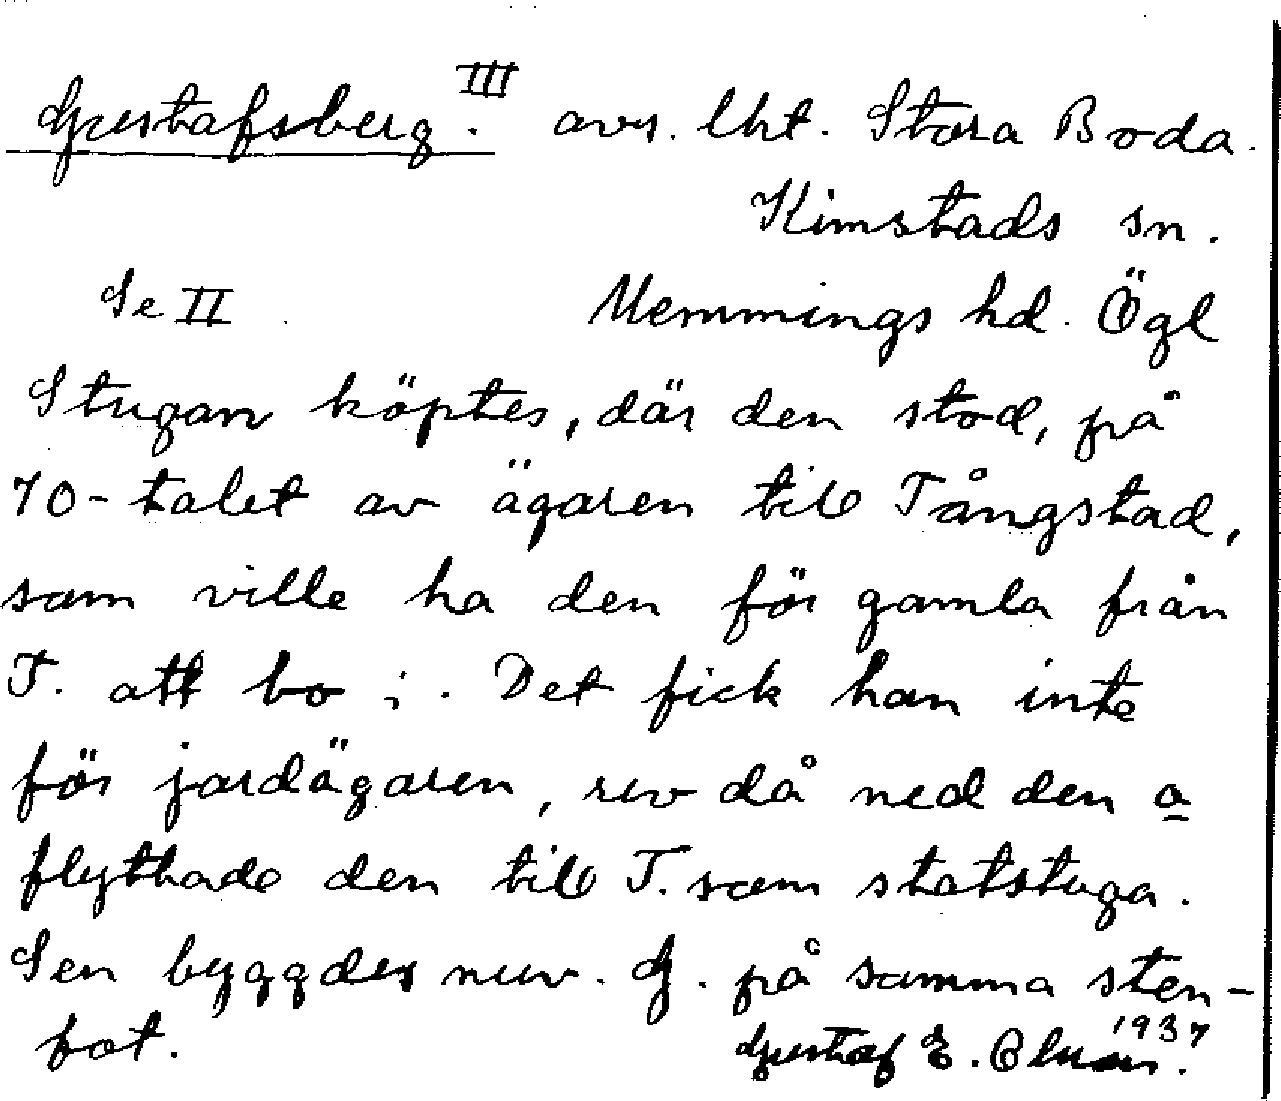 Gustafsberg. III avs. lht. Stora Boda.
Kimstads sn.
Se II. Memmings hd. Ögl
Stugan köptes, där den stod, på
70-talet av ägaren till Tångstad,
som ville ha den för gamla från
T. att bo i. Det fick han inte
för jordägaren, rev då ned den o
flyttade den till T. som statstuga.
Sen byggdes nuv. G. på samma sten-
fot.
Gustaf E. 1937